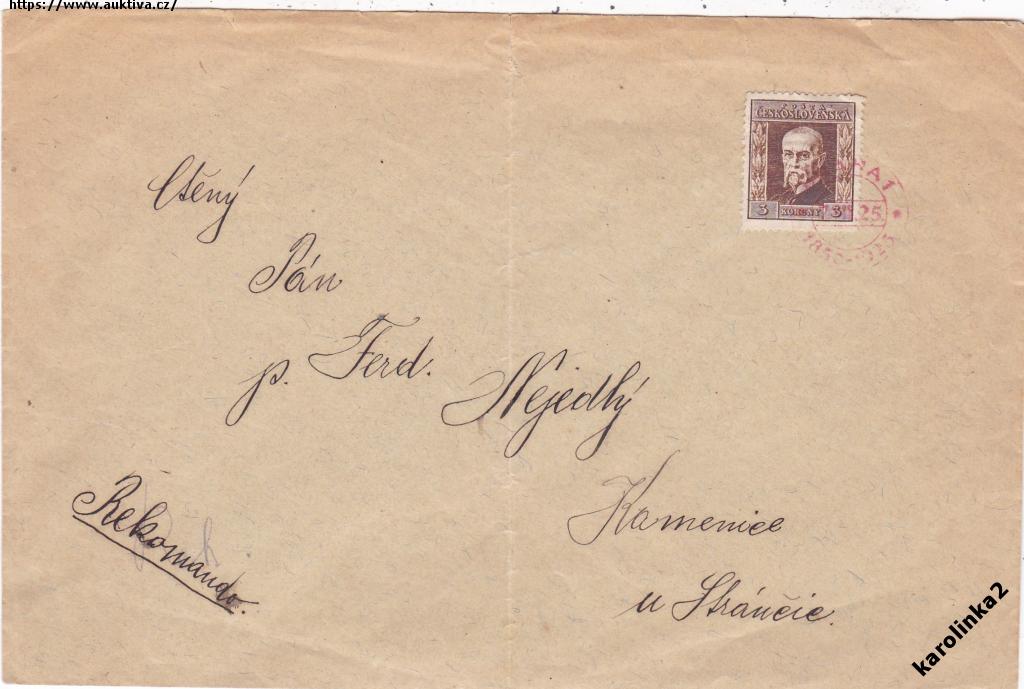 https://www.auktiva.cz/
POŠTA
ČESKOSLOVENSKA
3 KORUNY 3
25
1850-1925
Ctěný
Pán
p. Ferd. Nejedlý
Rekomando.
Kamenice
u Stránčic.
karolinka2